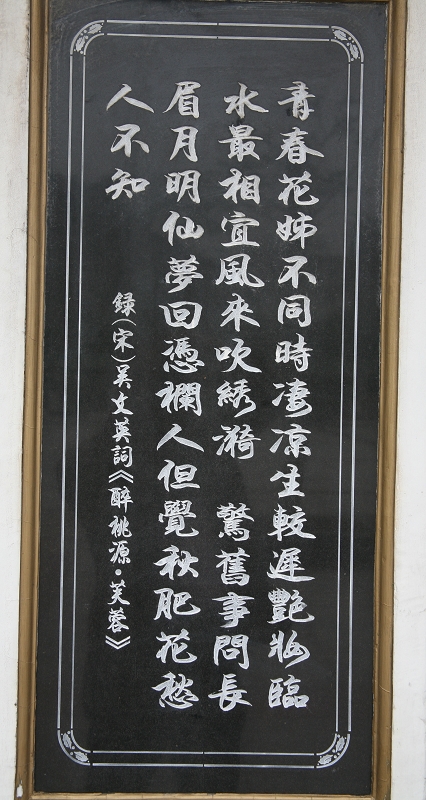 青春花姊不同時淒凉生較遲艷妝臨
水最相宜風來吹綉漪 驚舊事問長
眉月明仙夢回憑欄人但覺秋肥花愁
人不知
録(宋)吴文英詞《醉桃源·芙蓉》